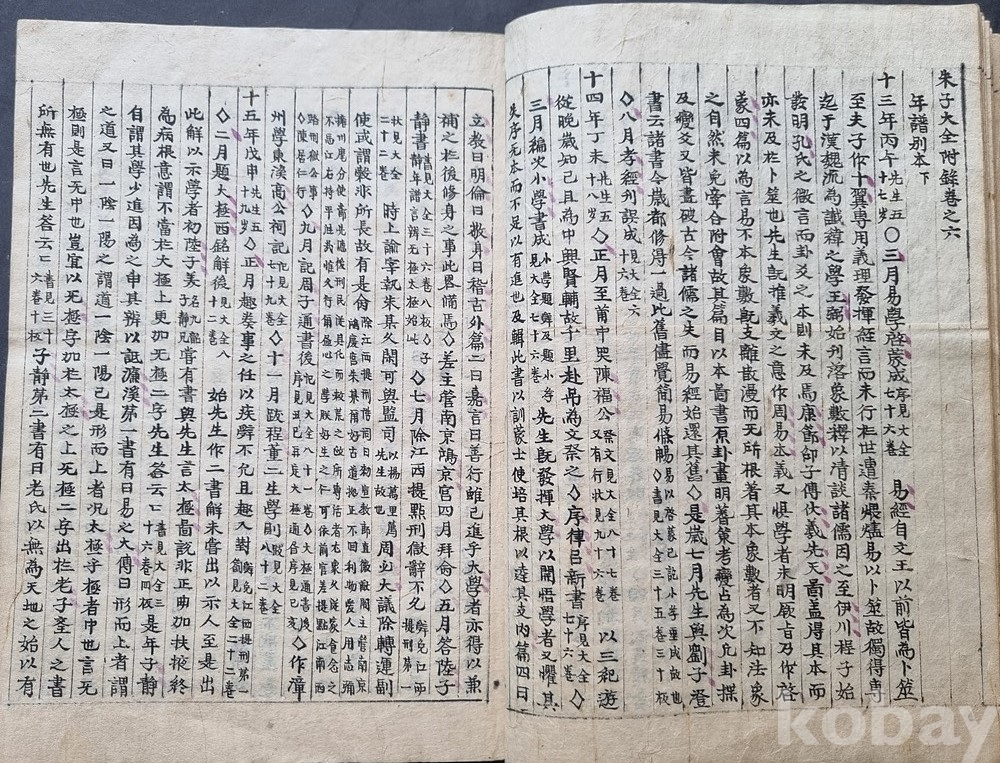 朱子大全附錄卷之六
年譜別本下
十三年丙午先生五十七歲〇三月易學啓蒙成序見大全七十六卷 易經自文王以前皆為卜筮故獨得專
至夫子作十翼專用義理發揮經言而未行於世遭秦煨燼易以卜筮故獨得
迄于漢魏流為讖緯之學王弼始刊落象數釋以清談諸儒因之至伊川程子始
發明孔氏之微言而卦爻之本則未及焉康節邵子傳伏羲先天啚盖得其本而
亦未及於卜筮也先生旣推羲文之意作周易本義又惧學者未明厥旨乃作啓
蒙四篇以為言易不本象數旣支離散漫而无所根著其本象數者又不知法象
之自然未免牽合附會故其篇目以本啚書原卦畫明蓍策考變占為次凡卦揲
及變爻又皆畫破古今諸儒之失而易經始還其舊◇是歲七月先生與劉子澄
書云諸書今歲都修得一過比舊儘覺簡易條暢◇書見大全三十五卷三十板
◇八月孝經刊誤成見大全六十六卷
十四年丁未先生五十八岁◇正月至莆中哭陳福公祭文見大全八十七卷行狀見九十六卷 以三紀遊
從晚歲知己且為中興賢輔故千里赴吊為文祭之◇序律呂新書序見大全七十六卷◇
三月編次小學書成小學題辞及題小學見大全七十六卷 先生旣發揮大學以開悟學者又懼其
失序无本而不足以有進也及輯此書以訓蒙士使培其根以達其支內篇四曰
立敎曰明倫曰敬身曰稽古外篇二曰嘉言曰善行雖已進乎大學者亦得以兼
補之於後修身之事此畧備焉◇差主管南京鴻慶官四月拜命◇五月答陸子
靜書書見大全三十六卷八板◇子靜年譜言辨无極太極始此 ◇七月除江西提點刑獄辞不允辞免江西提刑第一
狀見大全二十二卷 時上諭宰執朱某久閑可與監司先生故也 周必大議除轉運副
使或謂穀非所長故有是命
◇九月記周子通書後記見大全八十一卷 ◇作漳
州學東溪高公祠記記見大全七十九卷◇十一月跋程董二生學則跋見大全八十二卷
十五年戊申先生五十九岁◇正月趣奏事之任以疾辞不允且趣入對
◇二月題太極西銘解後見大全八十二卷 始先生作二書解未嘗出以示人至是出
此解以示學者初陸子美名九韶子靜兄嘗有書與先生言太極啚說非正曲加扶掖終
為病根意謂不當於太極上更加无極二字先生答云云書見大全三十六卷四板是年子靜
自謂其學少進因為之申其辨以詆濂溪第一書有曰易之大傳曰形而上者謂
之道又曰一陰一陽之謂道一陰一陽已是形而上者況太極乎極者中也言无
極則是言无中也豈宜以无極字加於太極之上无極二字出於老子圣人之書
所無有也先生答云云書見三十六卷十板 子靜第二書有曰老氏以無為天地之始以有